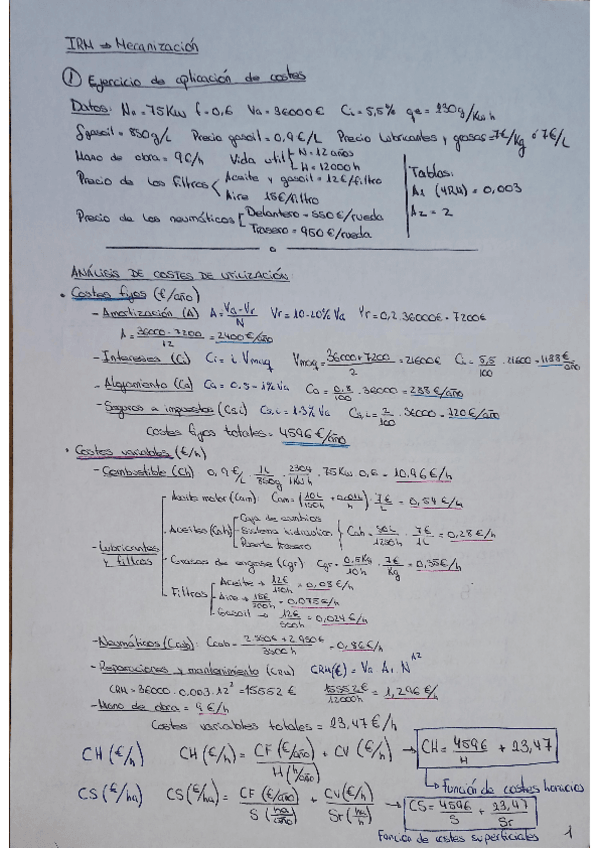 IRM ⇒ Mecanización
① Ejercicio de aplicación de costes
Datos: Nn = 75Kw f = 0,6 Va = 36000€ Ci = 5,5% qe = 230g/Kwh
δgasoil = 850g/L Precio gasoil = 0,9€/L Precio lubricantes y grasas = 7€/Kg ó 7€/L
Mano de obra = 9€/h Vida util N = 12 años H = 12000h
Precio de los filtros Aceite y gasoil = 12€/filtro Aire 15€/filtro
Precio de los neumáticos Delantero = 550€/rueda Trasero = 950€/rueda
Tablas:
A1 (4RM) = 0,003
A2 = 2
ANÁLISIS DE COSTES DE UTILIZACIÓN
• Costes fijos (€/año)
- Amortización (A) A = Va-Vr/N Vr = 10-20% Va Vr = 0,2·36000€ = 7200€
A = 36000-7200/12 = 2400€/año
- Intereses (Ci) Ci = i·Vmaq Vmaq = 36000+7200/2 = 21600€ Ci = 5,5/100 · 21600 = 1188€/año
- Alojamiento (Ca) Ca = 0,5-1% Va Ca = 0,8/100 · 36000 = 288€/año
- Seguros e impuestos (Csi) Cs,i = 1-3% Va Cs,i = 2/100 · 36000 = 720€/año
Costes fijos totales = 4596€/año
• Costes variables (€/h)
- Combustible (Ch) 0,9€/L · 1L/850g · 230g/1Kwh · 75Kw · 0,6 = 10,96€/h
- Lubricantes y filtros
Aceite motor (Cam)
Aceites (Cah) Caja de cambios Sistema hidraulico Puente trasero Cah = 50L/1250h · 7€/1L = 0,28€/h
Grasas de engrase (Cgr) Cgr = 0,5Kg/10h · 7€/Kg = 0,35€/h
Filtros Aceite → = 0,08€/h
Aire → 15€/200h = 0,075€/h
Gasoil → 12€/500h = 0,024€/h
- Neumáticos = 0,86€/h
- Reparaciones y mantenimiento (CRM) CRM(€) = Va · A1 · N^A2
CRM = 36000 · 0.003 · 12² = 15552€ 15552€/12000h = 1,296€/h
- Mano de obra = 9€/h
Costes variables totales = 23,47€/h
CH (€/h) CH (€/h) = CF (€/año)/H (h/año) + CV (€/h) → CH = 4596/H + 23,47
↳ Función de costes horarios
CS (€/ha) CS (€/ha) = CF (€/año)/S (ha/año) + CV (€/h)/Sr (ha/h) → CS = 4596/S + 23,47/Sr
Función de costes superficiales
1